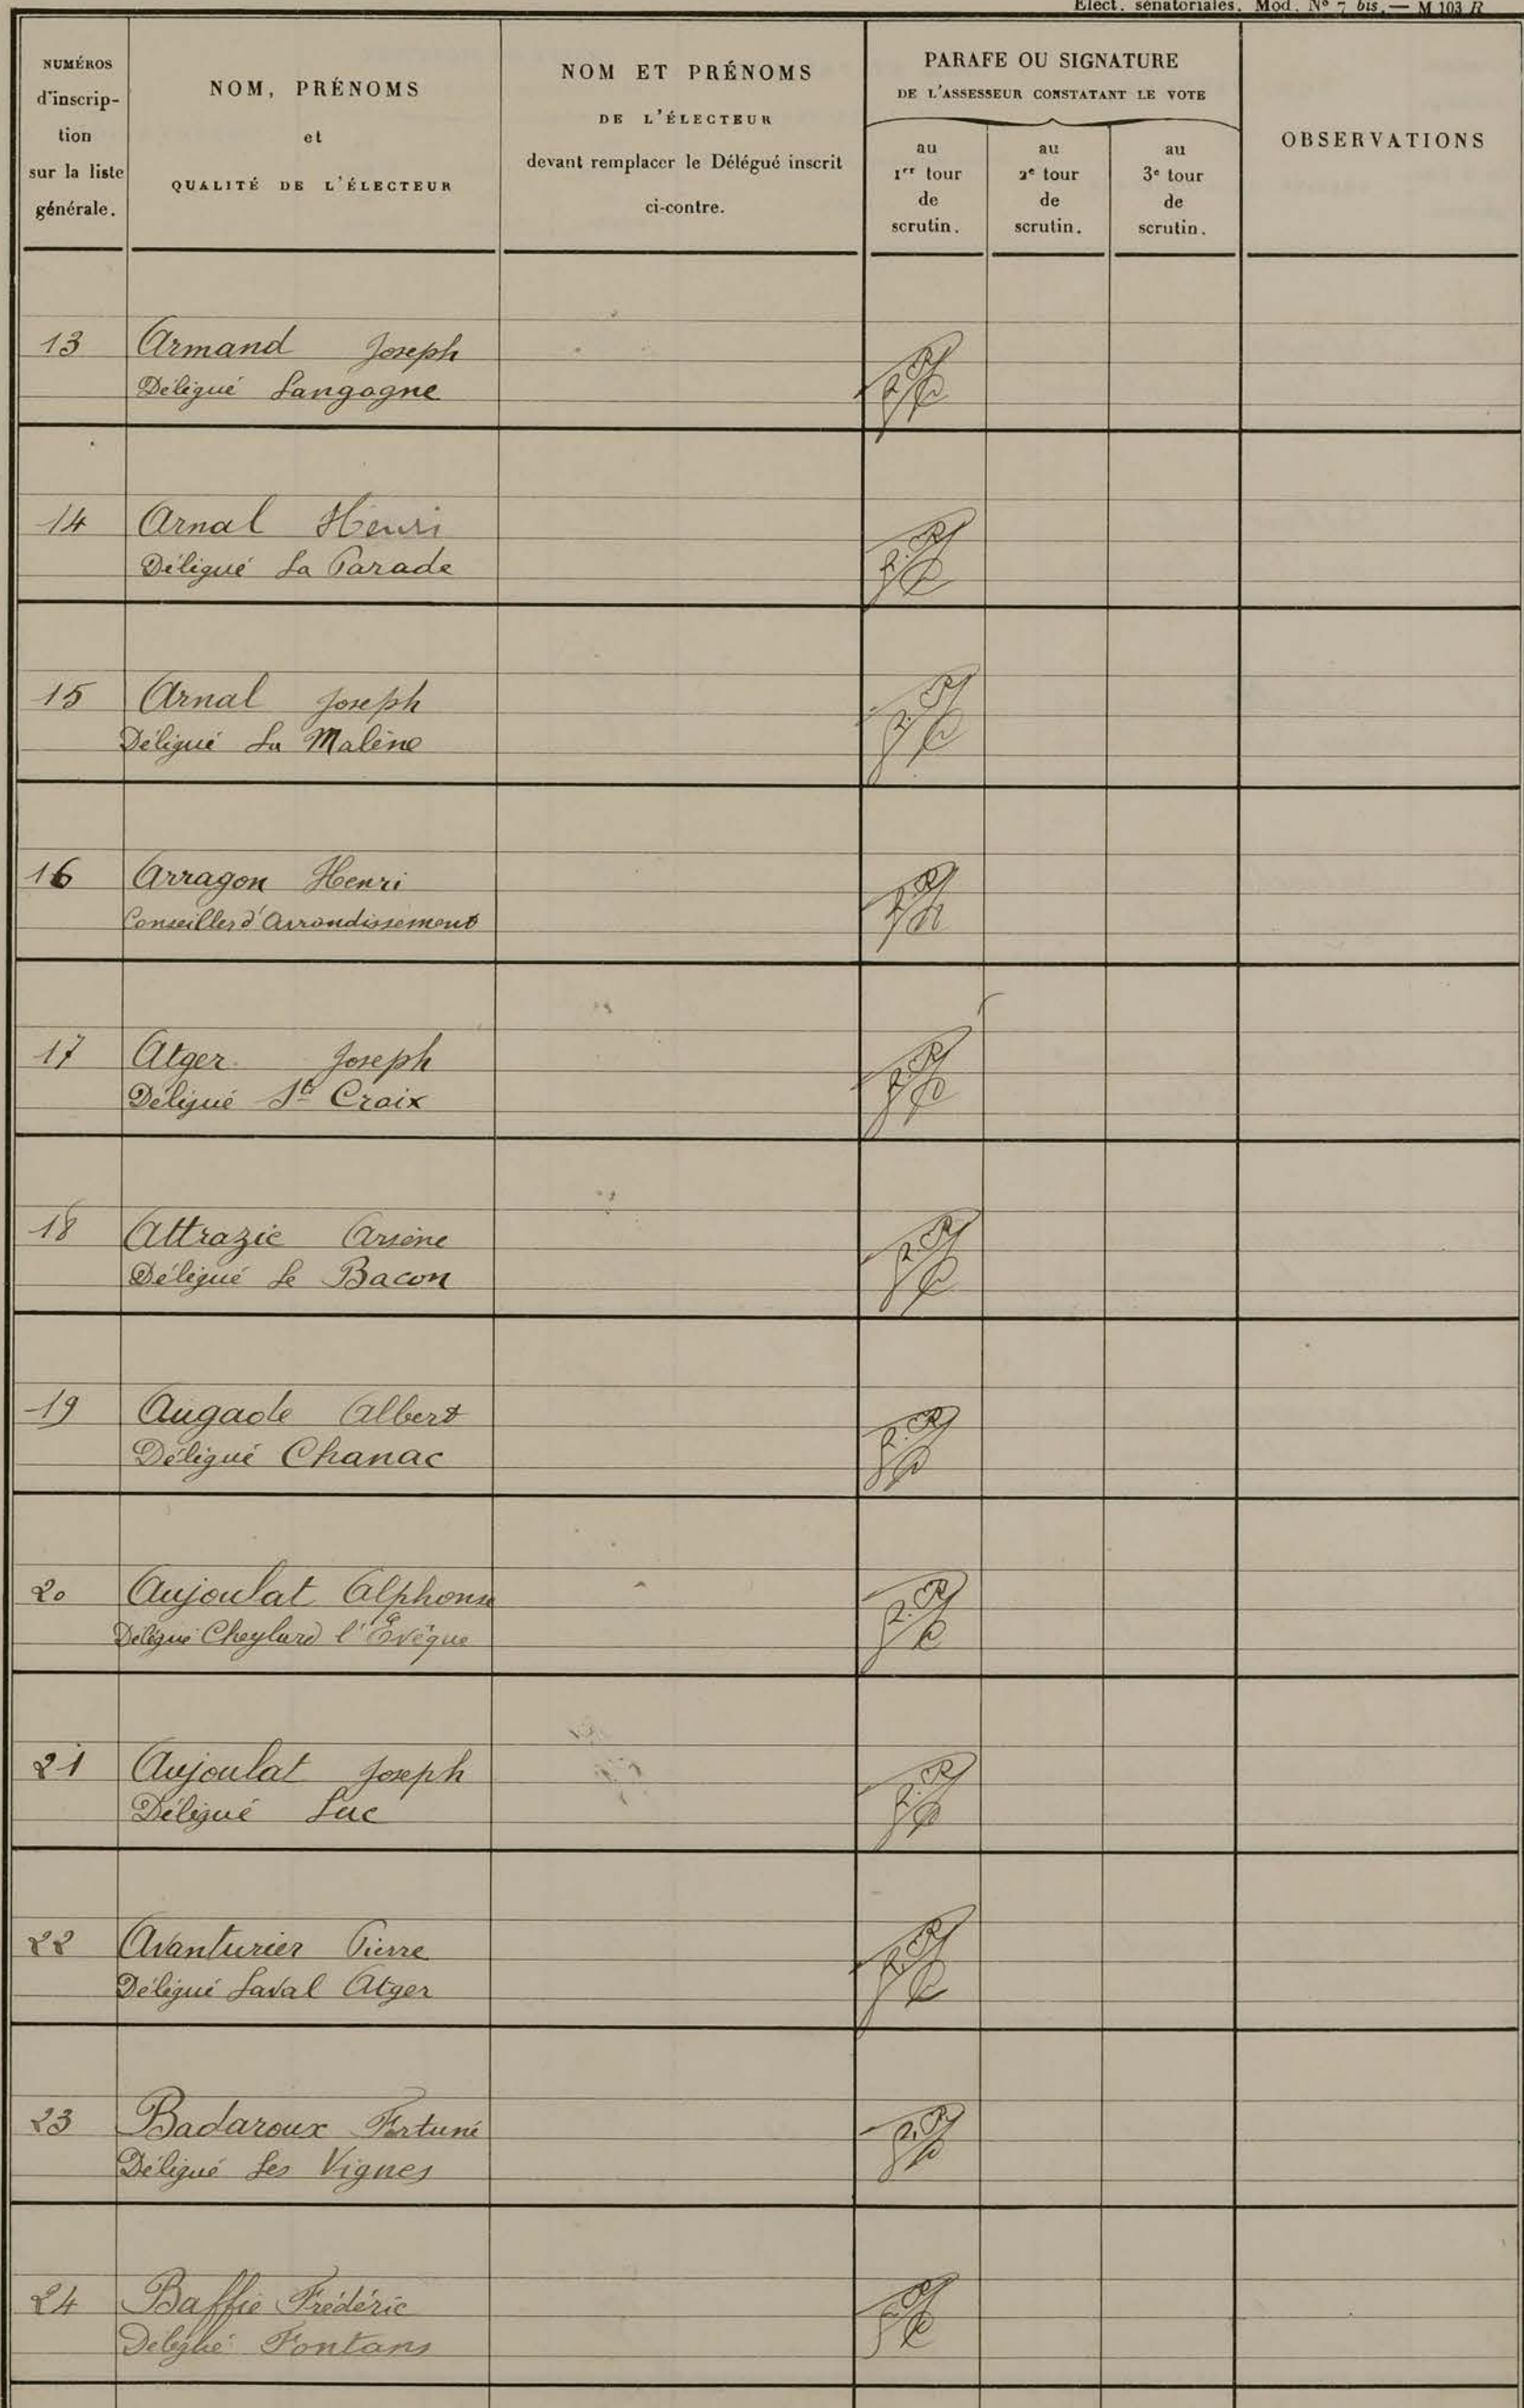 Elect. sénatoriales. Mod. N° 7 bis. — M 103 R
NUMÉROS
d'inscrip-
tion
sur la liste
générale.
NOM, PRÉNOMS
et
QUALITÉ DE L'ÉLECTEUR
NOM ET PRÉNOMS
DE L'ÉLECTEUR
devant remplacer le Délégué inscrit
ci-contre.
PARAFE OU SIGNATURE
DE L'ASSESSEUR CONSTATANT LE VOTE
au
1er tour
de
scrutin.
au
2e tour
de
scrutin.
au
3e tour
de
scrutin.
OBSERVATIONS
13 Armand Joseph
Délégué Langogne
14 Arnal Henri
Délégué La Parade
15 Arnal Joseph
Délégué La Malène
16 Arragon Henri
Conseiller d'Arrondissement
17 Atger Joseph
Délégué Ste Croix
18 Attrazic Arsène
Délégué Le Bacon
19 Augade Albert
Délégué Chanac
20 Aujoulat Alphonse
Délégué Cheylard l'Evêque
21 Aujoulat Joseph
Délégué Luc
22 Avanturier Pierre
Délégué Laval Atger
23 Badaroux Fortuné
Délégué Les Vignes
24 Baffie Frédéric
Délégué Fontans